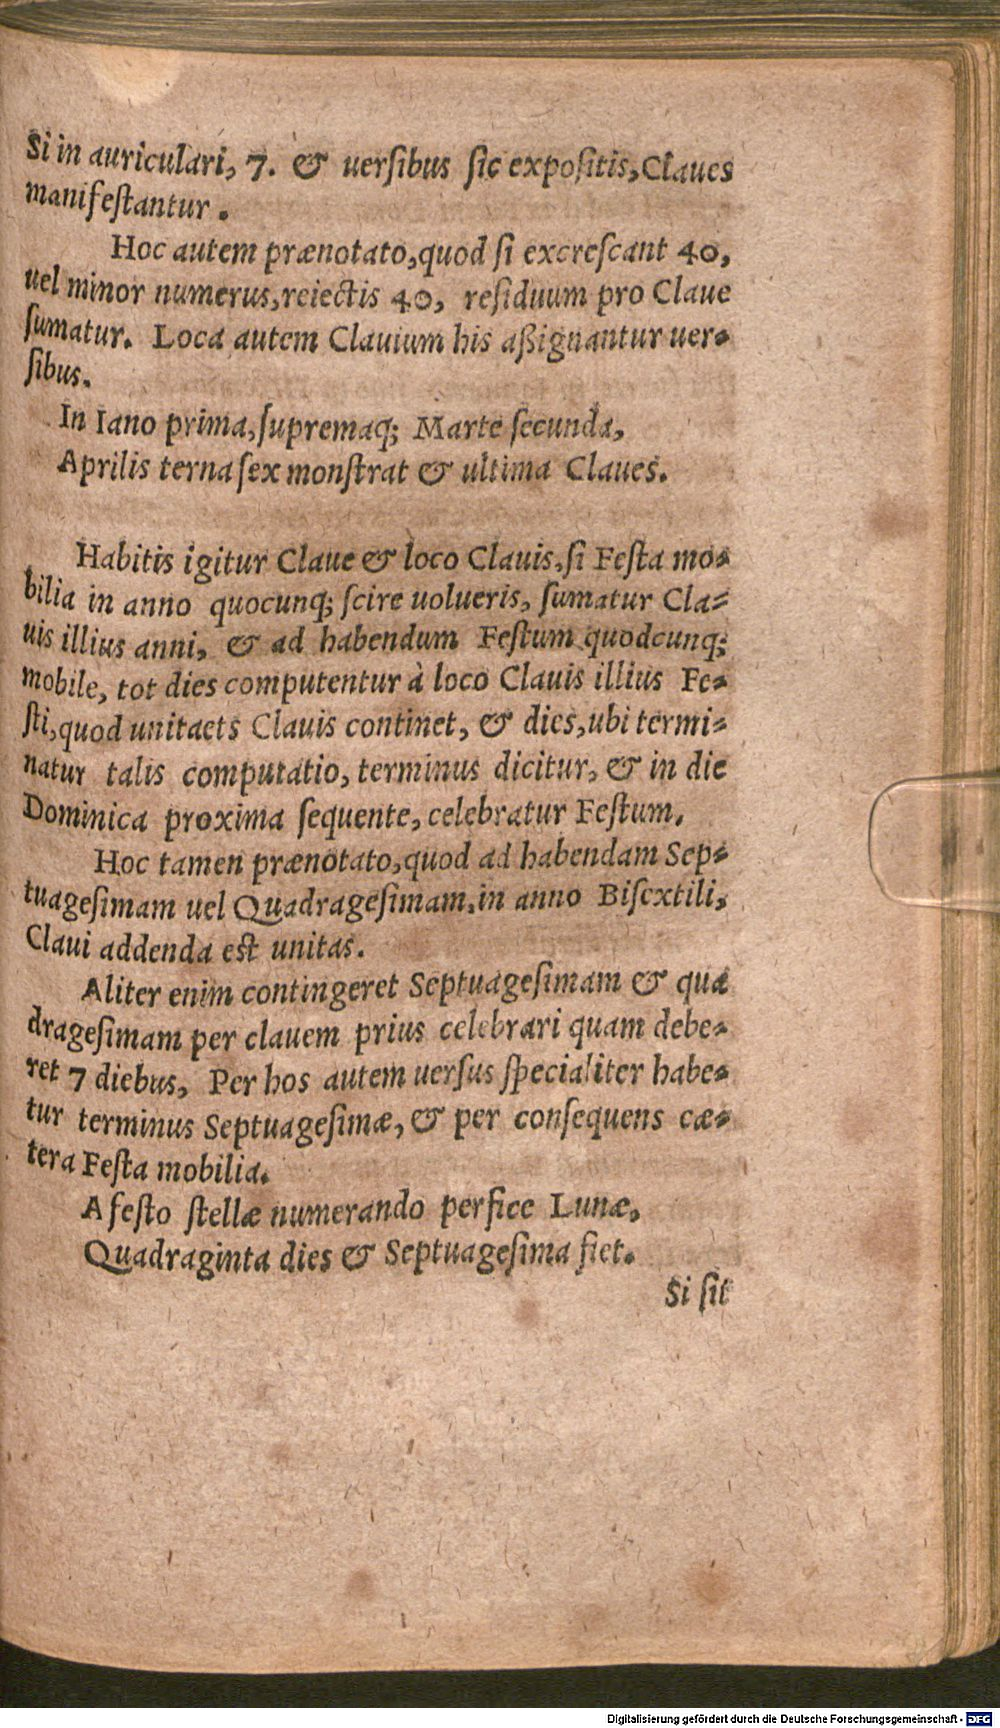 Si in auriculari, 7. & uerſibus ſic expoſitis, Claues
manifeſtantur.
Hoc autem prænotato, quod ſi excreſcant 40,
uel minor numerus, reiectis 40, reſiduum pro Claue
ſumatur. Loca autem Clauium his aßignantur uer-
ſibus.
In Iano prima, ſupremaq; Marte ſecunda,
Aprilis terna ſex monſtrat & ultima Claues.
Habitis igitur Claue & loco Clauis, ſi Feſta mo-
bilia in anno quocunq; ſcire uolueris, ſumatur Cla-
uis illius anni, & ad habendum Feſtum quodcunq;
mobile, tot dies computentur à loco Clauis illius Fe-
ſti, quod unitaets Clauis continet, & dies, ubi termi-
natur talis computatio, terminus dicitur, & in die
Dominica proxima ſequente, celebratur Feſtum.
Hoc tamen prænotato, quod ad habendam Sep-
tuageſimam uel Quadrageſimam, in anno Biſextili,
Claui addenda eſt unitas.
Aliter enim contingeret Septuageſimam & qua
drageſimam per clauem prius celebrari quam debe-
ret 7 diebus, Per hos autem uerſus ſpecialiter habe-
tur terminus Septuageſimæ, & per conſequens cæ-
tera Feſta mobilia.
A feſto ſtellæ numerando perfice Lunæ,
Quadraginta dies & Septuageſima fiet.
Si ſit
Digitalisierung gefördert durch die Deutsche Forschungsgemeinschaft - DFG